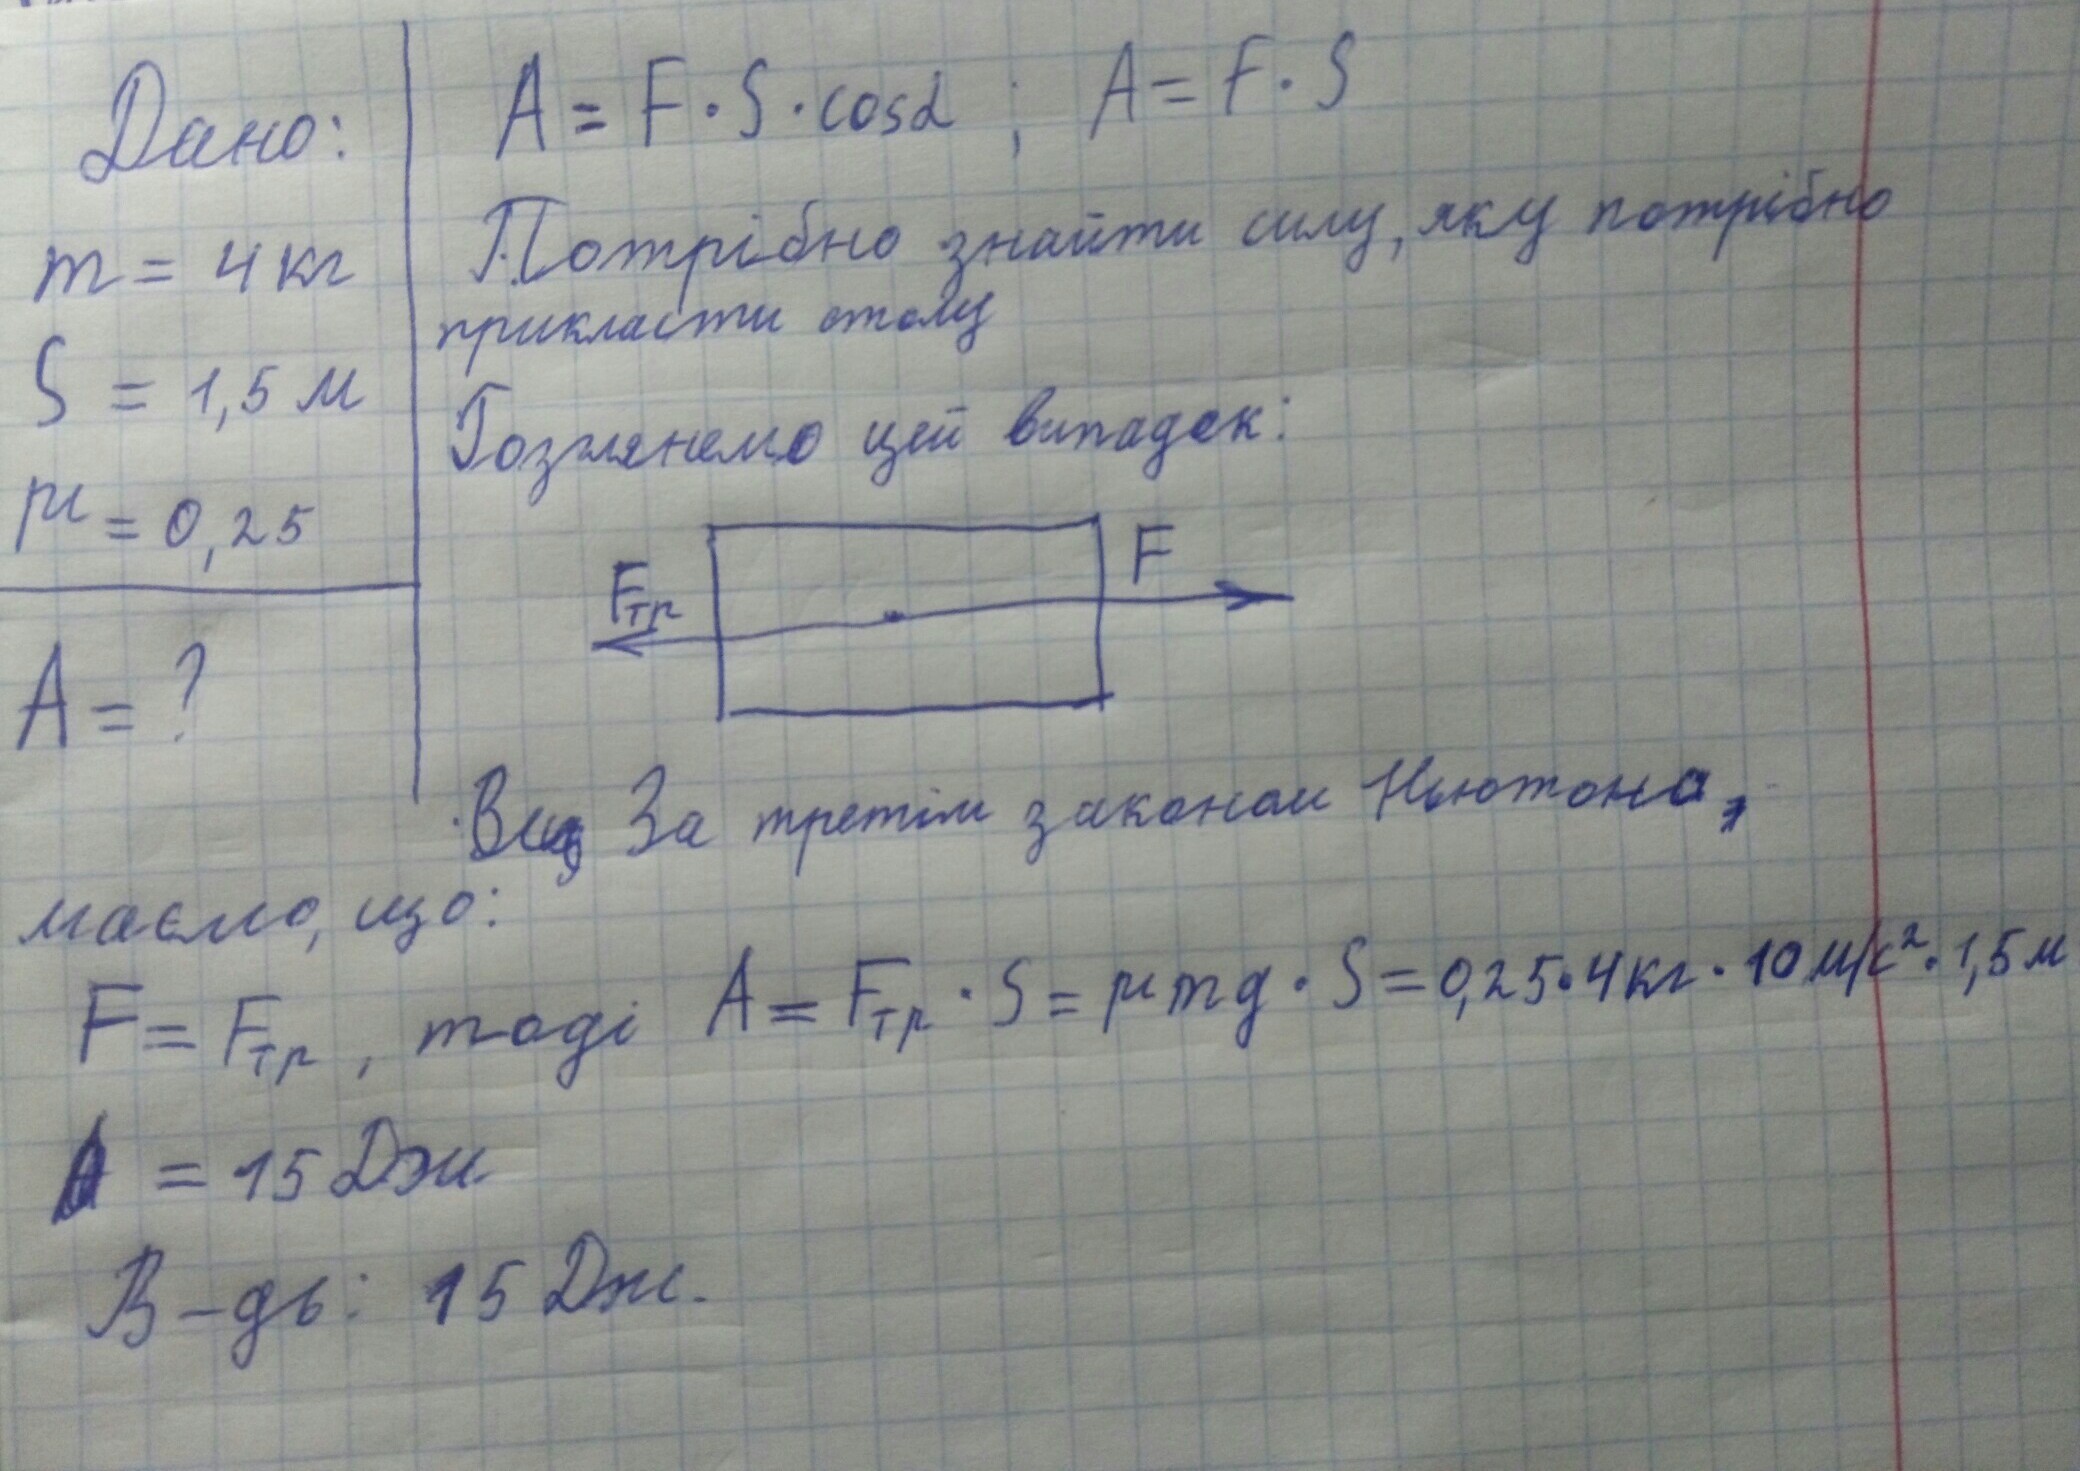 Дано:
m = 4 кг
S = 1,5 м
μ = 0,25
A = ?
A = F · S · cosα ; A = F · S
Потрібно знайти силу, яку потрібно
прикласти столу
Розглянемо цей випадок:
Fтр
F
За третім законом Ньютона,
маємо, що:
F = Fтр , тоді A = Fтр · S = μmg · S = 0,25 · 4 кг · 10 м/с² · 1,5 м
A = 15 Дж
В-дь: 15 Дж.